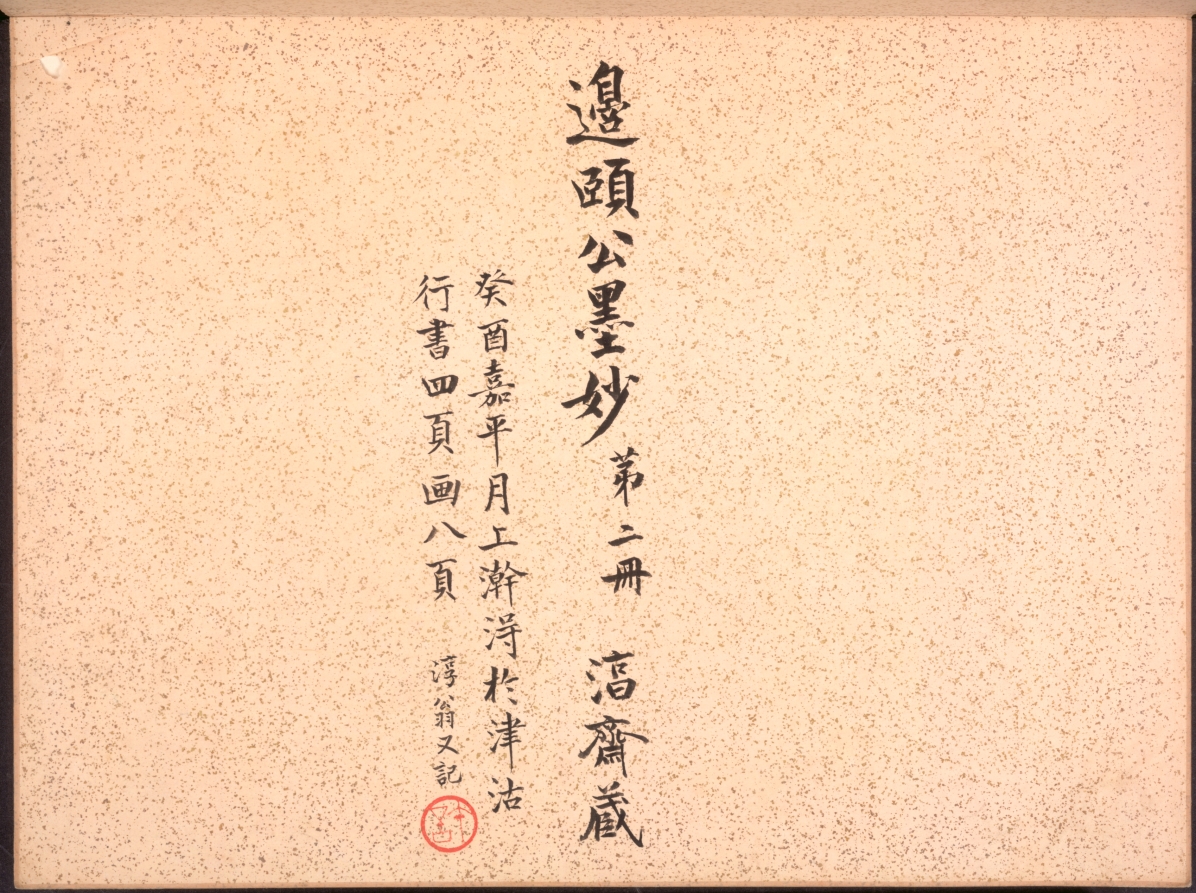 邊頤公墨妙 第二冊 滀齋藏
癸酉嘉平月上澣淂於津沽
行書四頁画八頁 淳翁又記